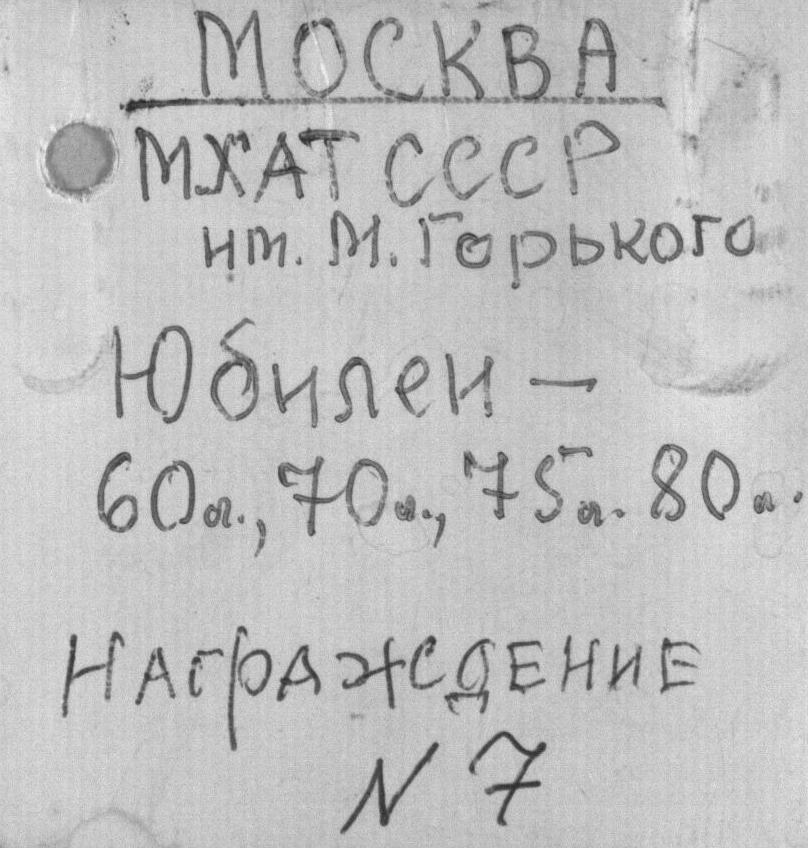 МОСКВА
МХАТ СССР
им. М. Горького
Юбилеи —
60л., 70л., 75л. 80л.
НАГРАЖДЕНИЕ
N 7